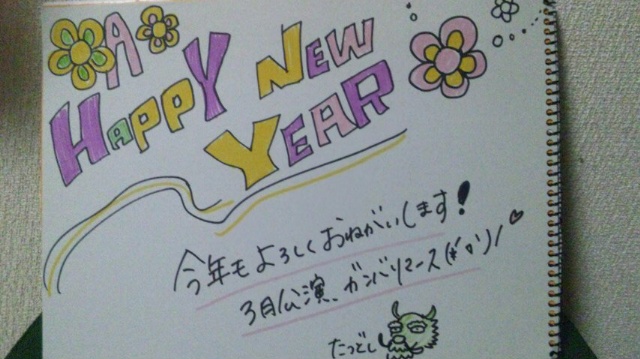 A
HAPPY NEW
YEAR
今年もよろしくおねがいします!
3月公演、ガンバリマース(*'o')/♡
たつどし